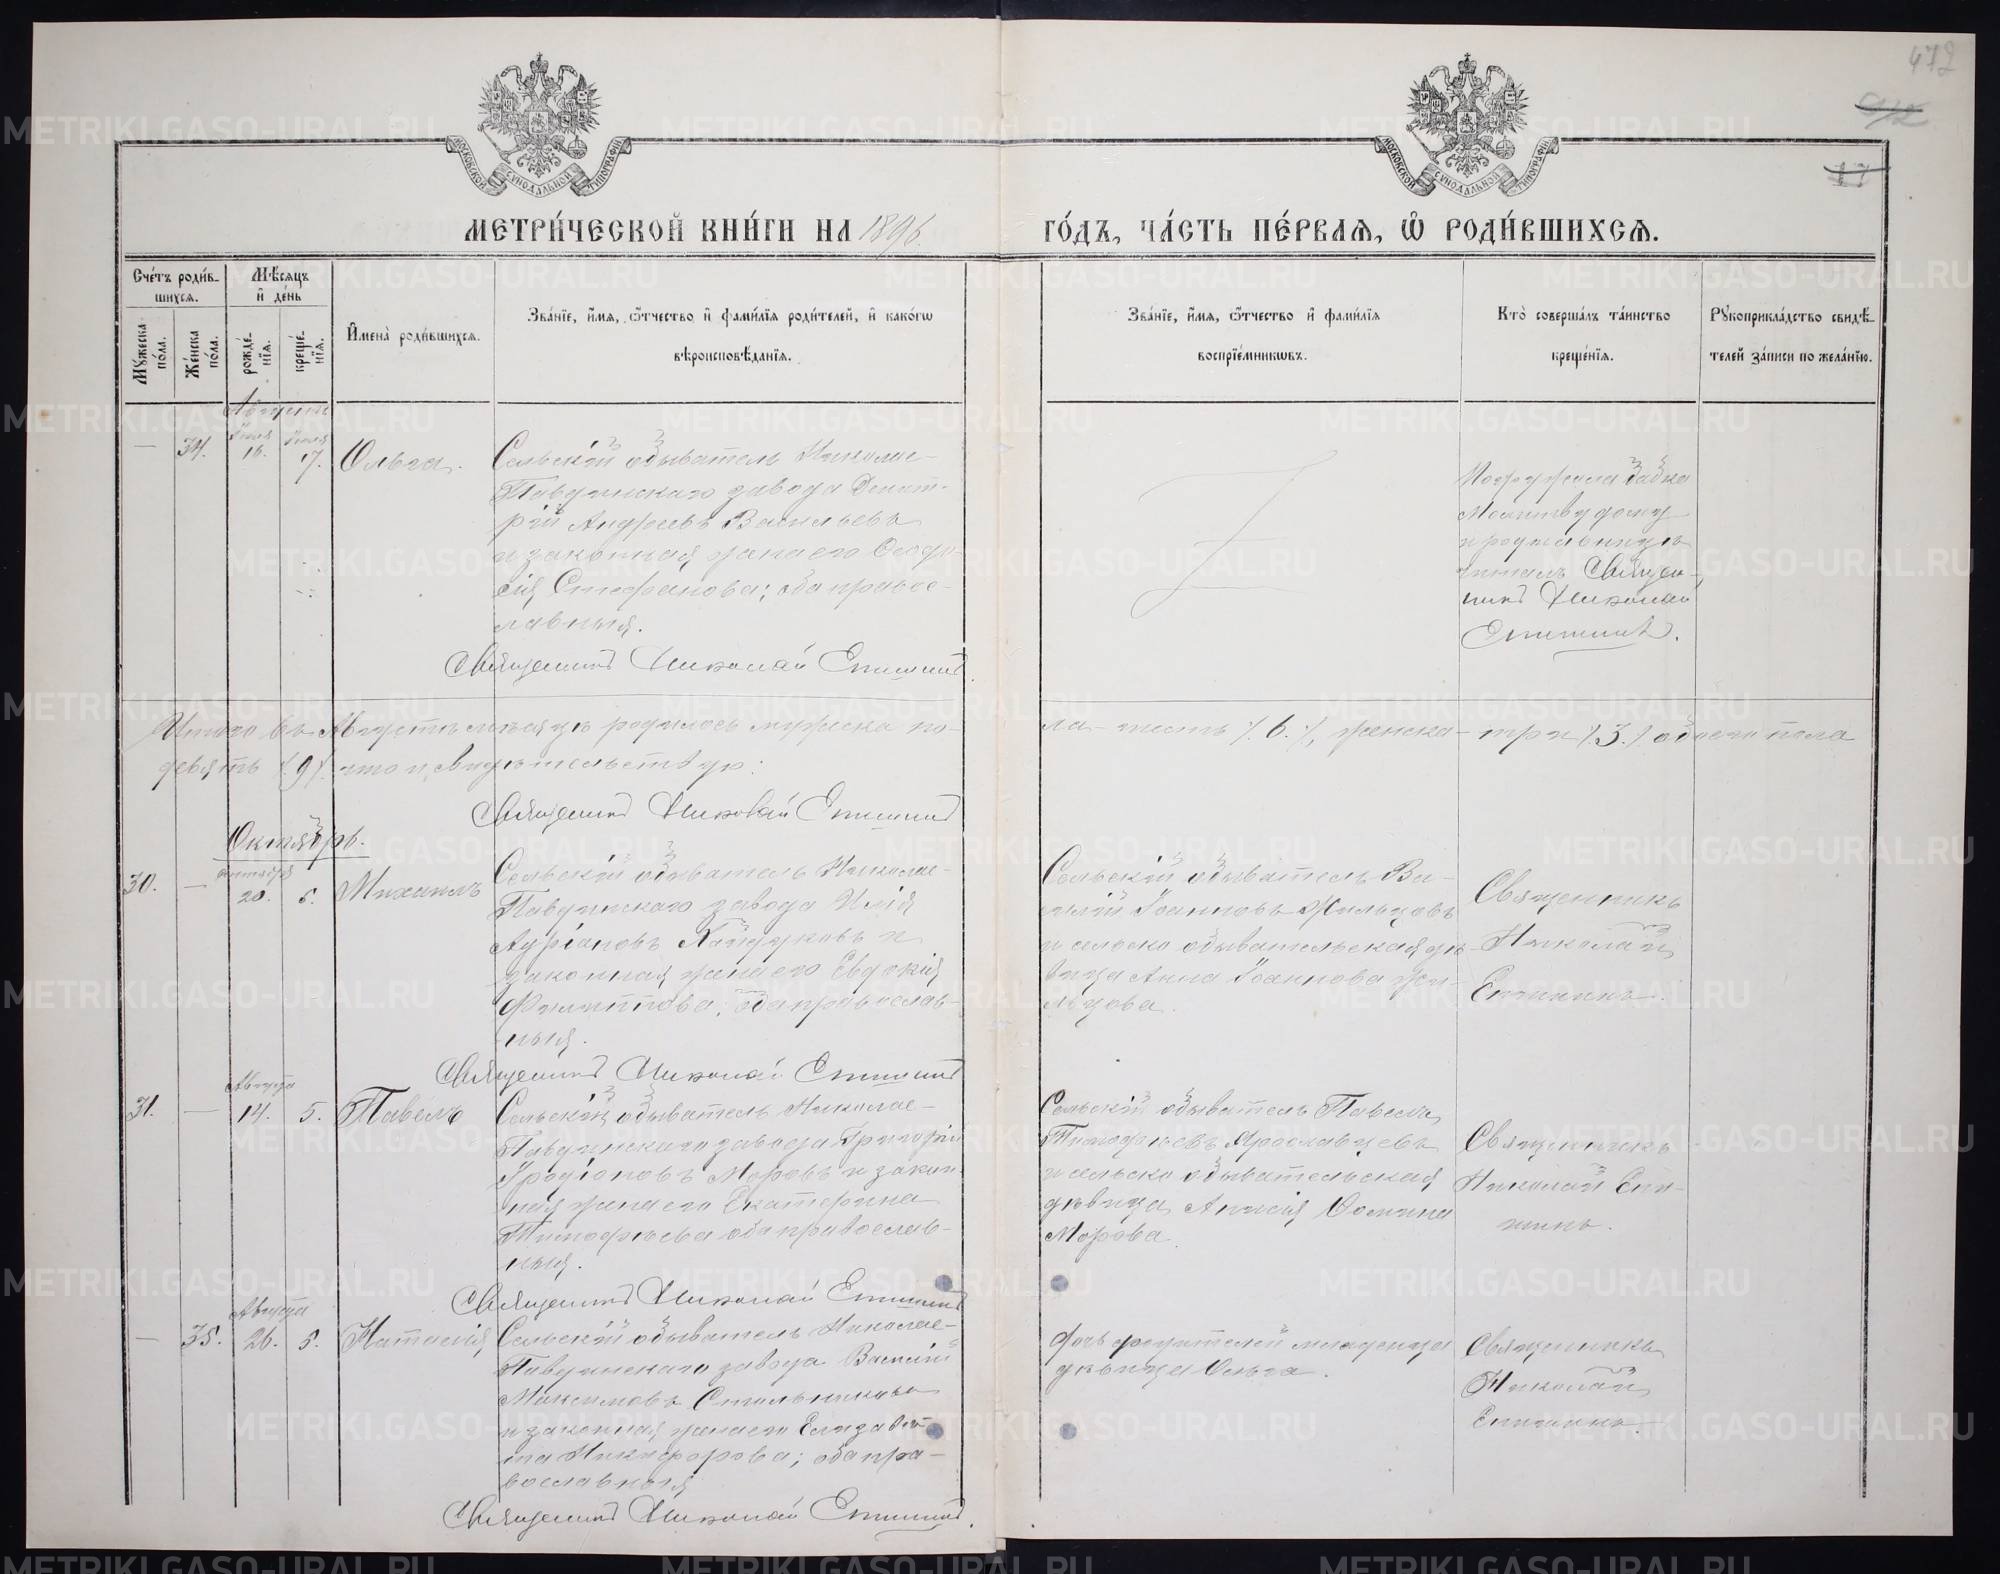 472
912
17
МОСКОВСКОЙ СѴНОДАЛЬНОЙ ТИПОГРАФІИ
МОСКОВСКОЙ СѴНОДАЛЬНОЙ ТИПОГРАФІИ
МЕТРИ́ЧЕСКОЙ КНИ́ГИ НА 1896
ГО́ДЪ, ЧА́СТЬ ПЕ́РВАѦ, Ѡ҆ РОДИ́ВШИХСѦ.
Сче́тъ роди́в-
шихсѧ.
Мꙋжеска по́ла.
Же́нска по́ла.
Мѣ́сѧцъ
и҆ де́нь
рожде́-
нїѧ.
креще́-
нїѧ.
И҆мена̀ роди́вшихсѧ.
Зва́нїе, и҆́мѧ, ѻ҆́тчество и҆ фами́лїѧ роди́телей, и҆ како́гѡ
вѣроисповѣ́данїѧ.
Зва́нїе, и҆́мѧ, ѻ҆́тчество и҆ фами́лїѧ
воспрїе́мникѡвъ.
Кто̀ соверша́лъ та́инство
креще́нїѧ.
Рꙋкоприкла́дство свидѣ́-
телей за́писи по жела́нїю.
Августъ
— 34. Іюля 16. Іюля 17. Ольга.
Сельскій обыватель Николае-
Павдинскаго завода Димит-
рій Андреевъ Васильевъ
и законная жена его Ѳеодо-
сія Стефанова; оба правос-
лавныя.
Священникъ Николай Епишинъ
Погружала бабка
Молитву дому
и родильницѣ
читалъ Священ-
никъ Николай
Епишинъ.
Итого въ Августѣ мѣсяцѣ родилось мужеска по-
ла — шесть /.6./, женска — три /.3./ обоего пола
девять /.9./. что и свидѣтельствую:
Священникъ Николай Епишинъ
Октябрь.
30. — Сентября 20. 6. Михаилъ
Сельскій обыватель Николае-
Павдинскаго завода Илія
Адріановъ Кайдуковъ и
законная жена его Евдокія
Филиппова; оба православ-
ныя.
Священникъ Николай Епишинъ
Сельскій обыватель Ва-
силій Іоанновъ Жильцовъ
и сельско обывательская дѣ-
вица Анна Іоаннова Жи-
льцова.
Священникъ
Николай
Епишинъ.
31. — Августа 14. 5. Павелъ
Сельскій обыватель Николае-
Павдинскаго завода Григорій
Иродіоновъ Моровъ и закон-
ная жена его Екатерина
Тимофѣева оба православ-
ныя.
Священникъ Николай Епишинъ
Сельскій обыватель Павелъ
Тимофѣевъ Ярославцевъ
и сельско обывательская
дѣвица Анисія Ѳомина
Морова.
Священникъ
Николай Епи-
шинъ.
— 35. Августа 26. 5. Наталія
Сельскій обыватель Николае-
Павдинскаго завода Василій
Максимовъ Стольниковъ
и законная жена его Елизаве-
та Никифорова; оба пра-
вославныя
Священникъ Николай Епишинъ.
дочь родителей младенца
дѣвица Ольга.
Священникъ
Николай
Епишинъ.
METRIKI.GASO-URAL.RU